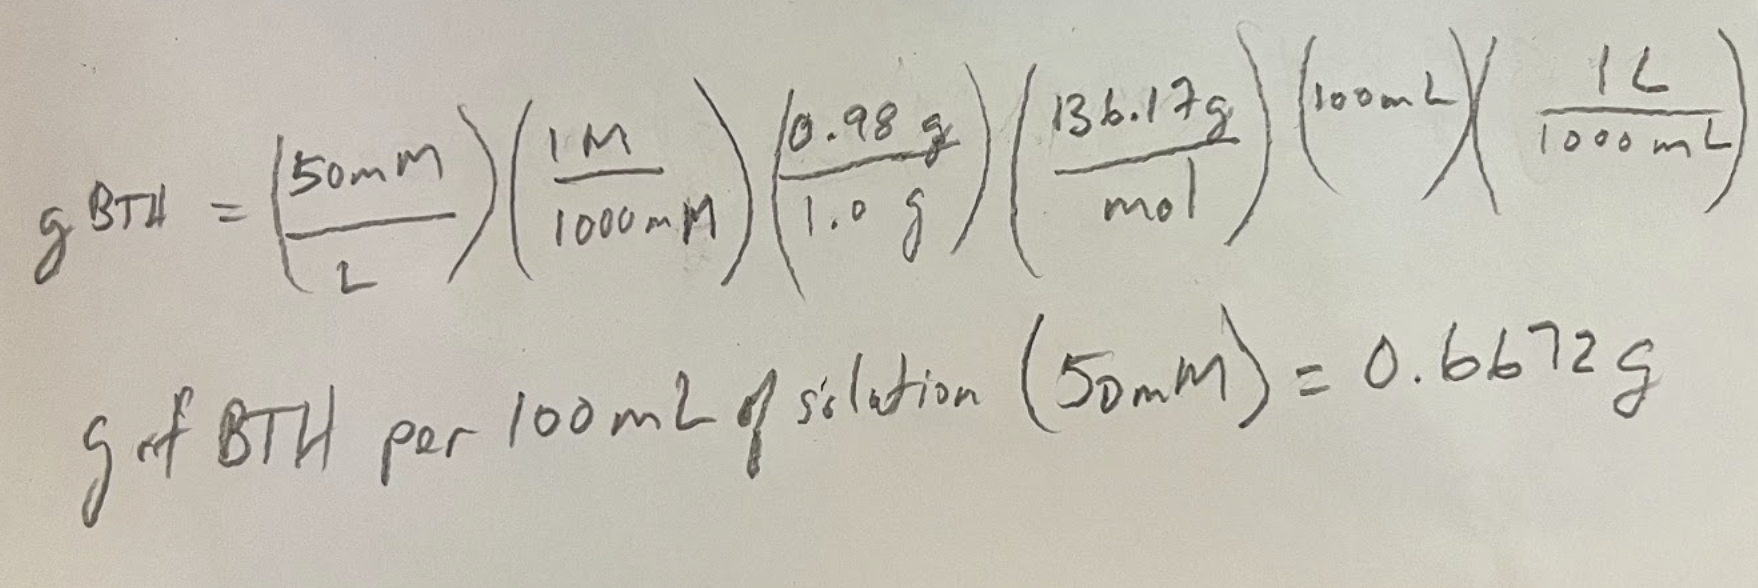 g BTH = (50mM / L) (1 M / 1000 mM) (0.98 g / 1.0 g) (136.17g / mol) (100mL) (1 L / 1000 mL)
g of BTH per 100mL of solution (50mM) = 0.6672g